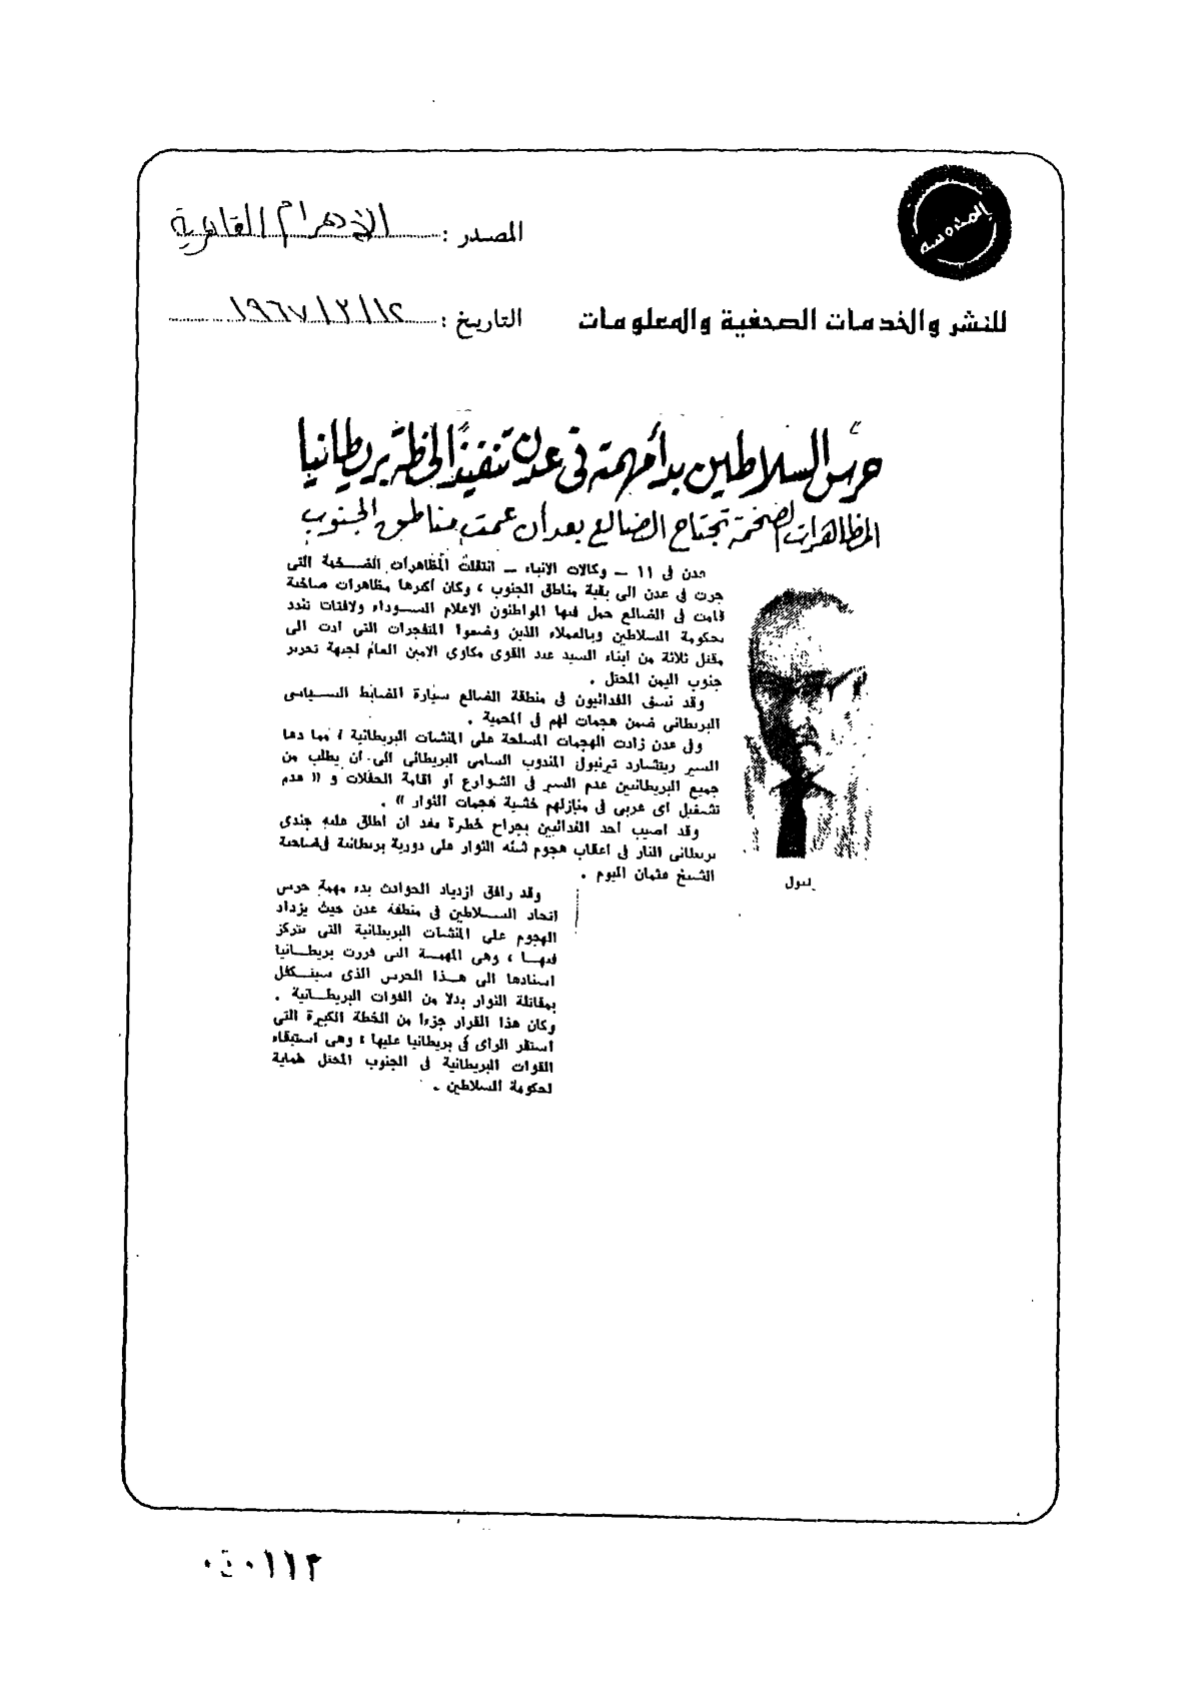 المحروسة
المصدر : الأهرام القاهرية
للنشر والخدمات الصحفية والمعلومات
التاريخ : ١٩٦٧/٣/١٢
حرس السلاطين بدأ مهمته فى عدن تنفيذًا لخطة بريطانيا
المظاهرات الضخمة تجتاح الضالع بعد أن عمت مناطق الجنوب
عدن فى ١١ ــ وكالات الانباء ــ انتقلت المظاهرات الضخمة التى
جرت فى عدن الى بقية مناطق الجنوب ، وكان أكبرها مظاهرات صاخبة
قامت فى الضالع حمل فيها المواطنون الاعلام السوداء ولافتات تندد
بحكومة السلاطين وبالعملاء الذين وضعوا المتفجرات التى ادت الى
مقتل ثلاثة من ابناء السيد عبد القوى مكاوى الامين العام لجبهة تحرير
جنوب اليمن المحتل .
وقد نسف الفدائيون فى منطقة الضالع سيارة الضابط السياسى
البريطانى ضمن هجمات لهم فى المحمية .
وفى عدن زادت الهجمات المسلحة على المنشآت البريطانية ، مما دعا
السير ريتشارد تيرنبول المندوب السامى البريطانى الى أن يطلب من
جميع البريطانيين عدم السير فى الشوارع أو اقامة الحفلات و « عدم
تشغيل اى عربى فى منازلهم خشية هجمات الثوار » .
وقد اصيب احد الفدائيين بجراح خطرة بعد ان اطلق عليه جندى
بريطانى النار فى اعقاب هجوم شنه الثوار على دورية بريطانية فى ضاحية
الشيخ عثمان اليوم .
وقد رافق ازدياد الحوادث بدء مهمة حرس
اتحاد السلاطين فى منطقة عدن حيث يزداد
الهجوم على المنشآت البريطانية التى تتركز
فيها ، وهى المهمة التى قررت بريطانيا
اسنادها الى هذا الحرس الذى سيتكفل
بمقاتلة الثوار بدلا من القوات البريطانية .
وكان هذا القرار جزءا من الخطة الكبيرة التى
استقر الراى فى بريطانيا عليها ، وهى استبقاء
القوات البريطانية فى الجنوب المحتل حماية
لحكومة السلاطين .
نبول